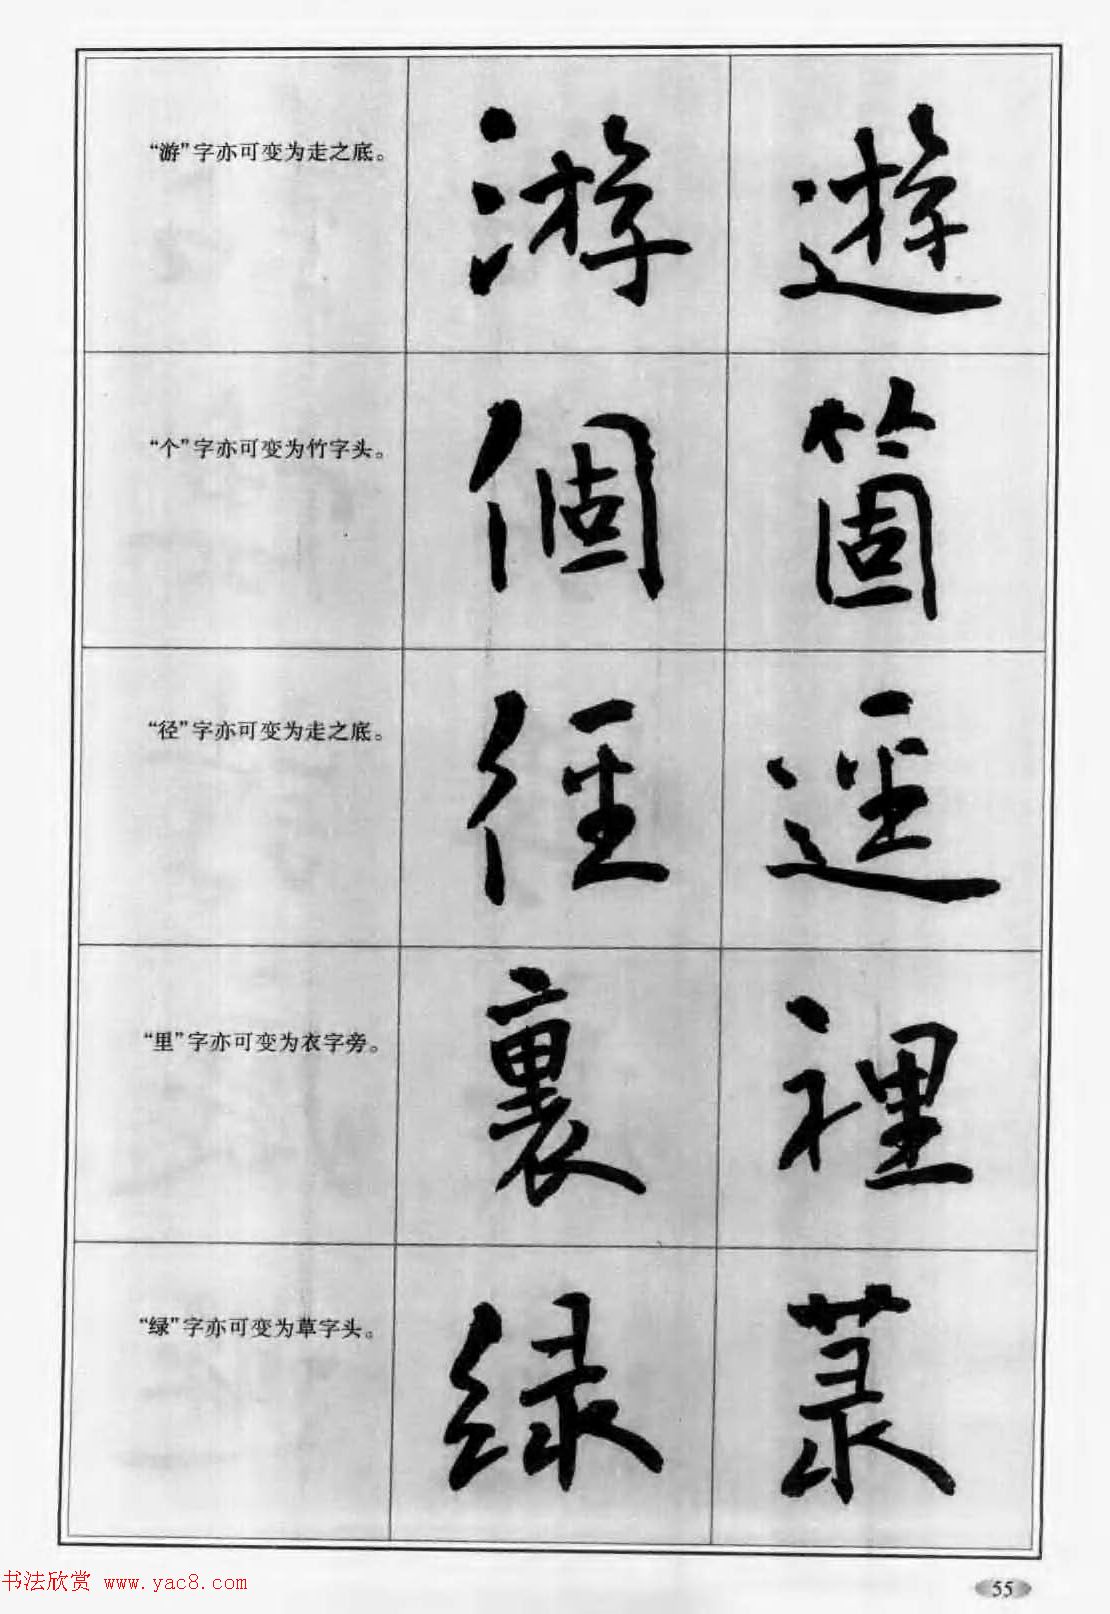 “游”字亦可变为走之底。
游 遊
“个”字亦可变为竹字头。
個 箇
“径”字亦可变为走之底。
徑 逕
“里”字亦可变为衣字旁。
裏 裡
“绿”字亦可变为草字头。
绿 菉
书法欣赏 www.yac8.com
55